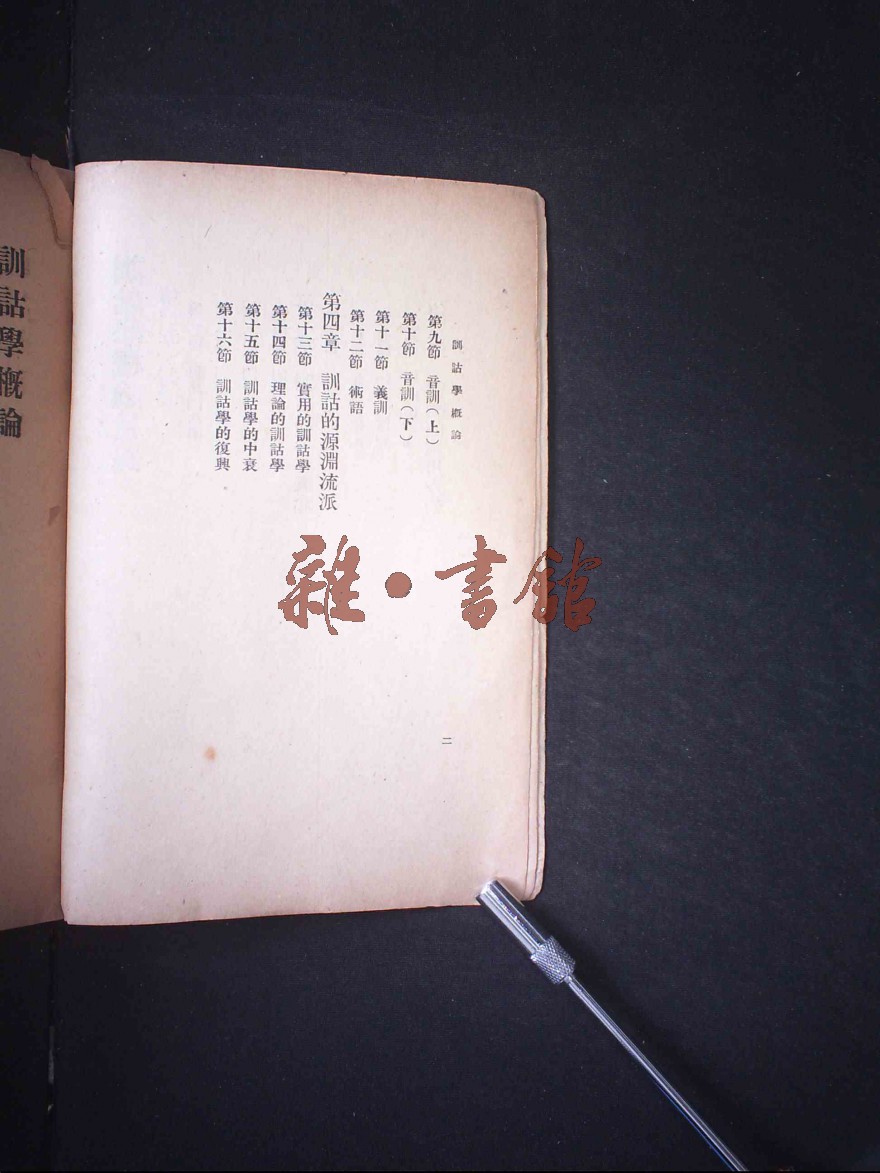 訓詁學概論
第九節　音訓（上）
第十節　音訓（下）
第十一節　義訓
第十二節　術語
第四章　訓詁的源淵流派
第十三節　實用的訓詁學
第十四節　理論的訓詁學
第十五節　訓詁學的中衰
第十六節　訓詁學的復興
二
訓詁學概論
雜・書館